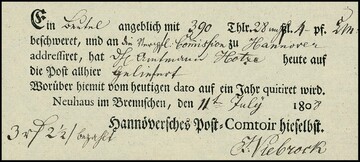 Ein Beutel angeblich mit 390 Thlr. 28 mgl. 4 pf.
beschweret, und an die Verpfl: Comission zu Hannover
addressiret, hat Hr. Amtmann Hotze heute auf
die Post allhier geliefert
Worüber hiemit vom heutigen dato auf ein Jahr quitiret wird.
Neuhaus im Bremischen, den 11t July 180
Hannöversches Post-Comtoir hieselbst.
bezahlt
Viebrock